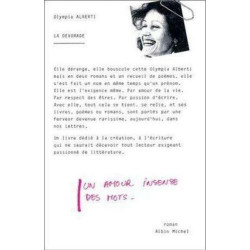 Olympia ALBERTI
LA DEVORADE
Elle dérange, elle bouscule cette Olympia Alberti
mais en deux romans et un recueil de poèmes, elle
s'est fait un nom en même temps qu'un prénom.
Elle est l'exigence même. Par amour de la vie.
Par respect des êtres. Par passion d'écrire.
Avec elle, tout cela se tient, se relie, et ses
livres, poèmes ou romans, sont portés par une
ferveur devenue rarissime, aujourd'hui, dans
nos lettres.
Un livre dédié à la création, à l'écriture
qui ne saurait décevoir tout lecteur exigeant
passionné de littérature.
UN AMOUR INSENSÉ
DES MOTS.
roman
Albin Michel